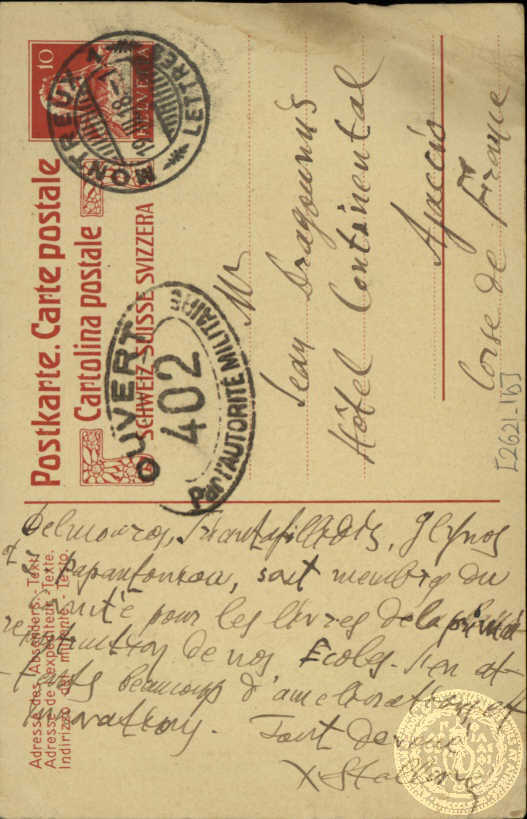 Postkarte. Carte postale
Cartolina postale
SCHWEIZ SUISSE SVIZZERA
10
HELVETIA
MONTREUX 1
LETTRES
OUVERT
402
Par l'AUTORITÉ MILITAIRE
Mr
Jean Dragoumis
Hôtel Continental
Ajaccio
Corse de France
[2621_1b]
Adresse des Absenders. - Text.
Adresse de l'expéditeur. - Texte.
Indirizzo del mittente. - Testo.
Delmouzos, Triantafillidis, Glynos
et Papantoniou, sont membres du
comité pour les livres de la
de nos Ecoles. J'en at-
tends beaucoup d'améliorations et
innovations. Tout